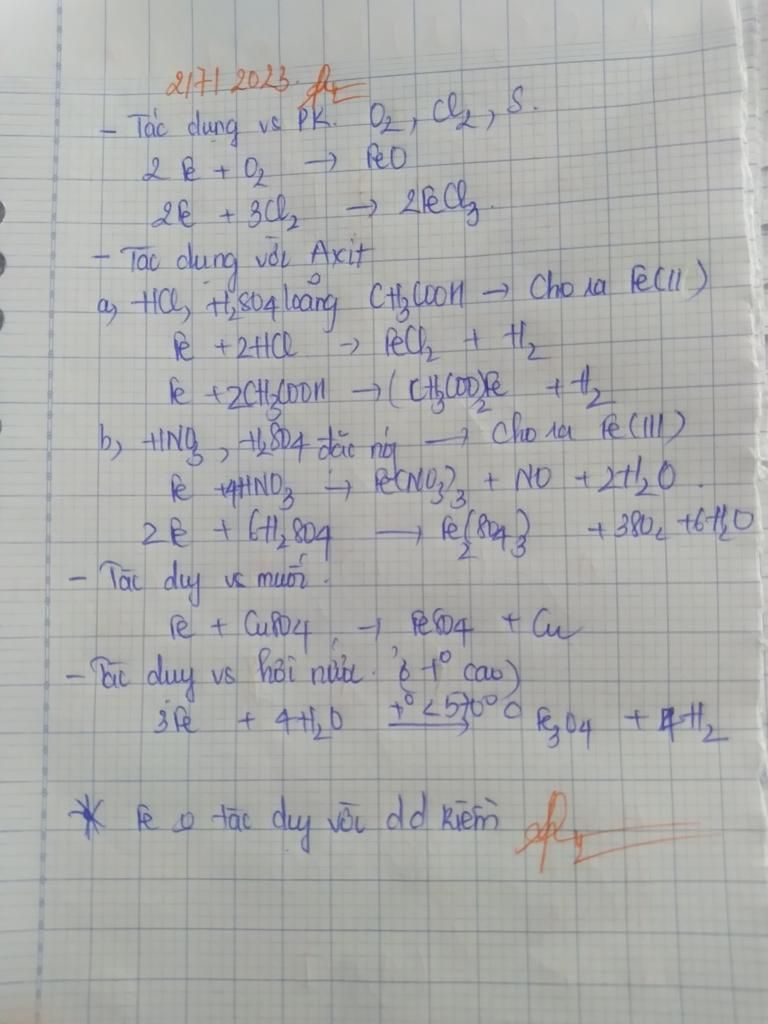 21712023.
- Tác dụng vs PK. O2, Cl2, S.
2Fe + O2 → FeO
2Fe + 3Cl2 → 2FeCl3.
- Tác dụng với Axit
a, HCl, H2SO4 loãng CH3COOH → Cho ra Fe(II)
Fe + 2HCl → FeCl2 + H2
Fe + 2CH3COOH → (CH3COO)2Fe + H2
b, HNO3, H2SO4 đặc nóg → Cho ra Fe(III)
Fe + 4HNO3 → Fe(NO3)3 + NO + 2H2O.
2Fe + 6H2SO4 → Fe2(SO4)3 + 3SO2 + 6H2O
- Tác dụg vs muối.
Fe + CuSO4 → FeSO4 + Cu
- Tác dụg vs hơi nước. ở t° cao)
3Fe + 4H2O t° < 570° C → Fe3O4 + 4H2
* Fe o tác dụg với dd kiềm